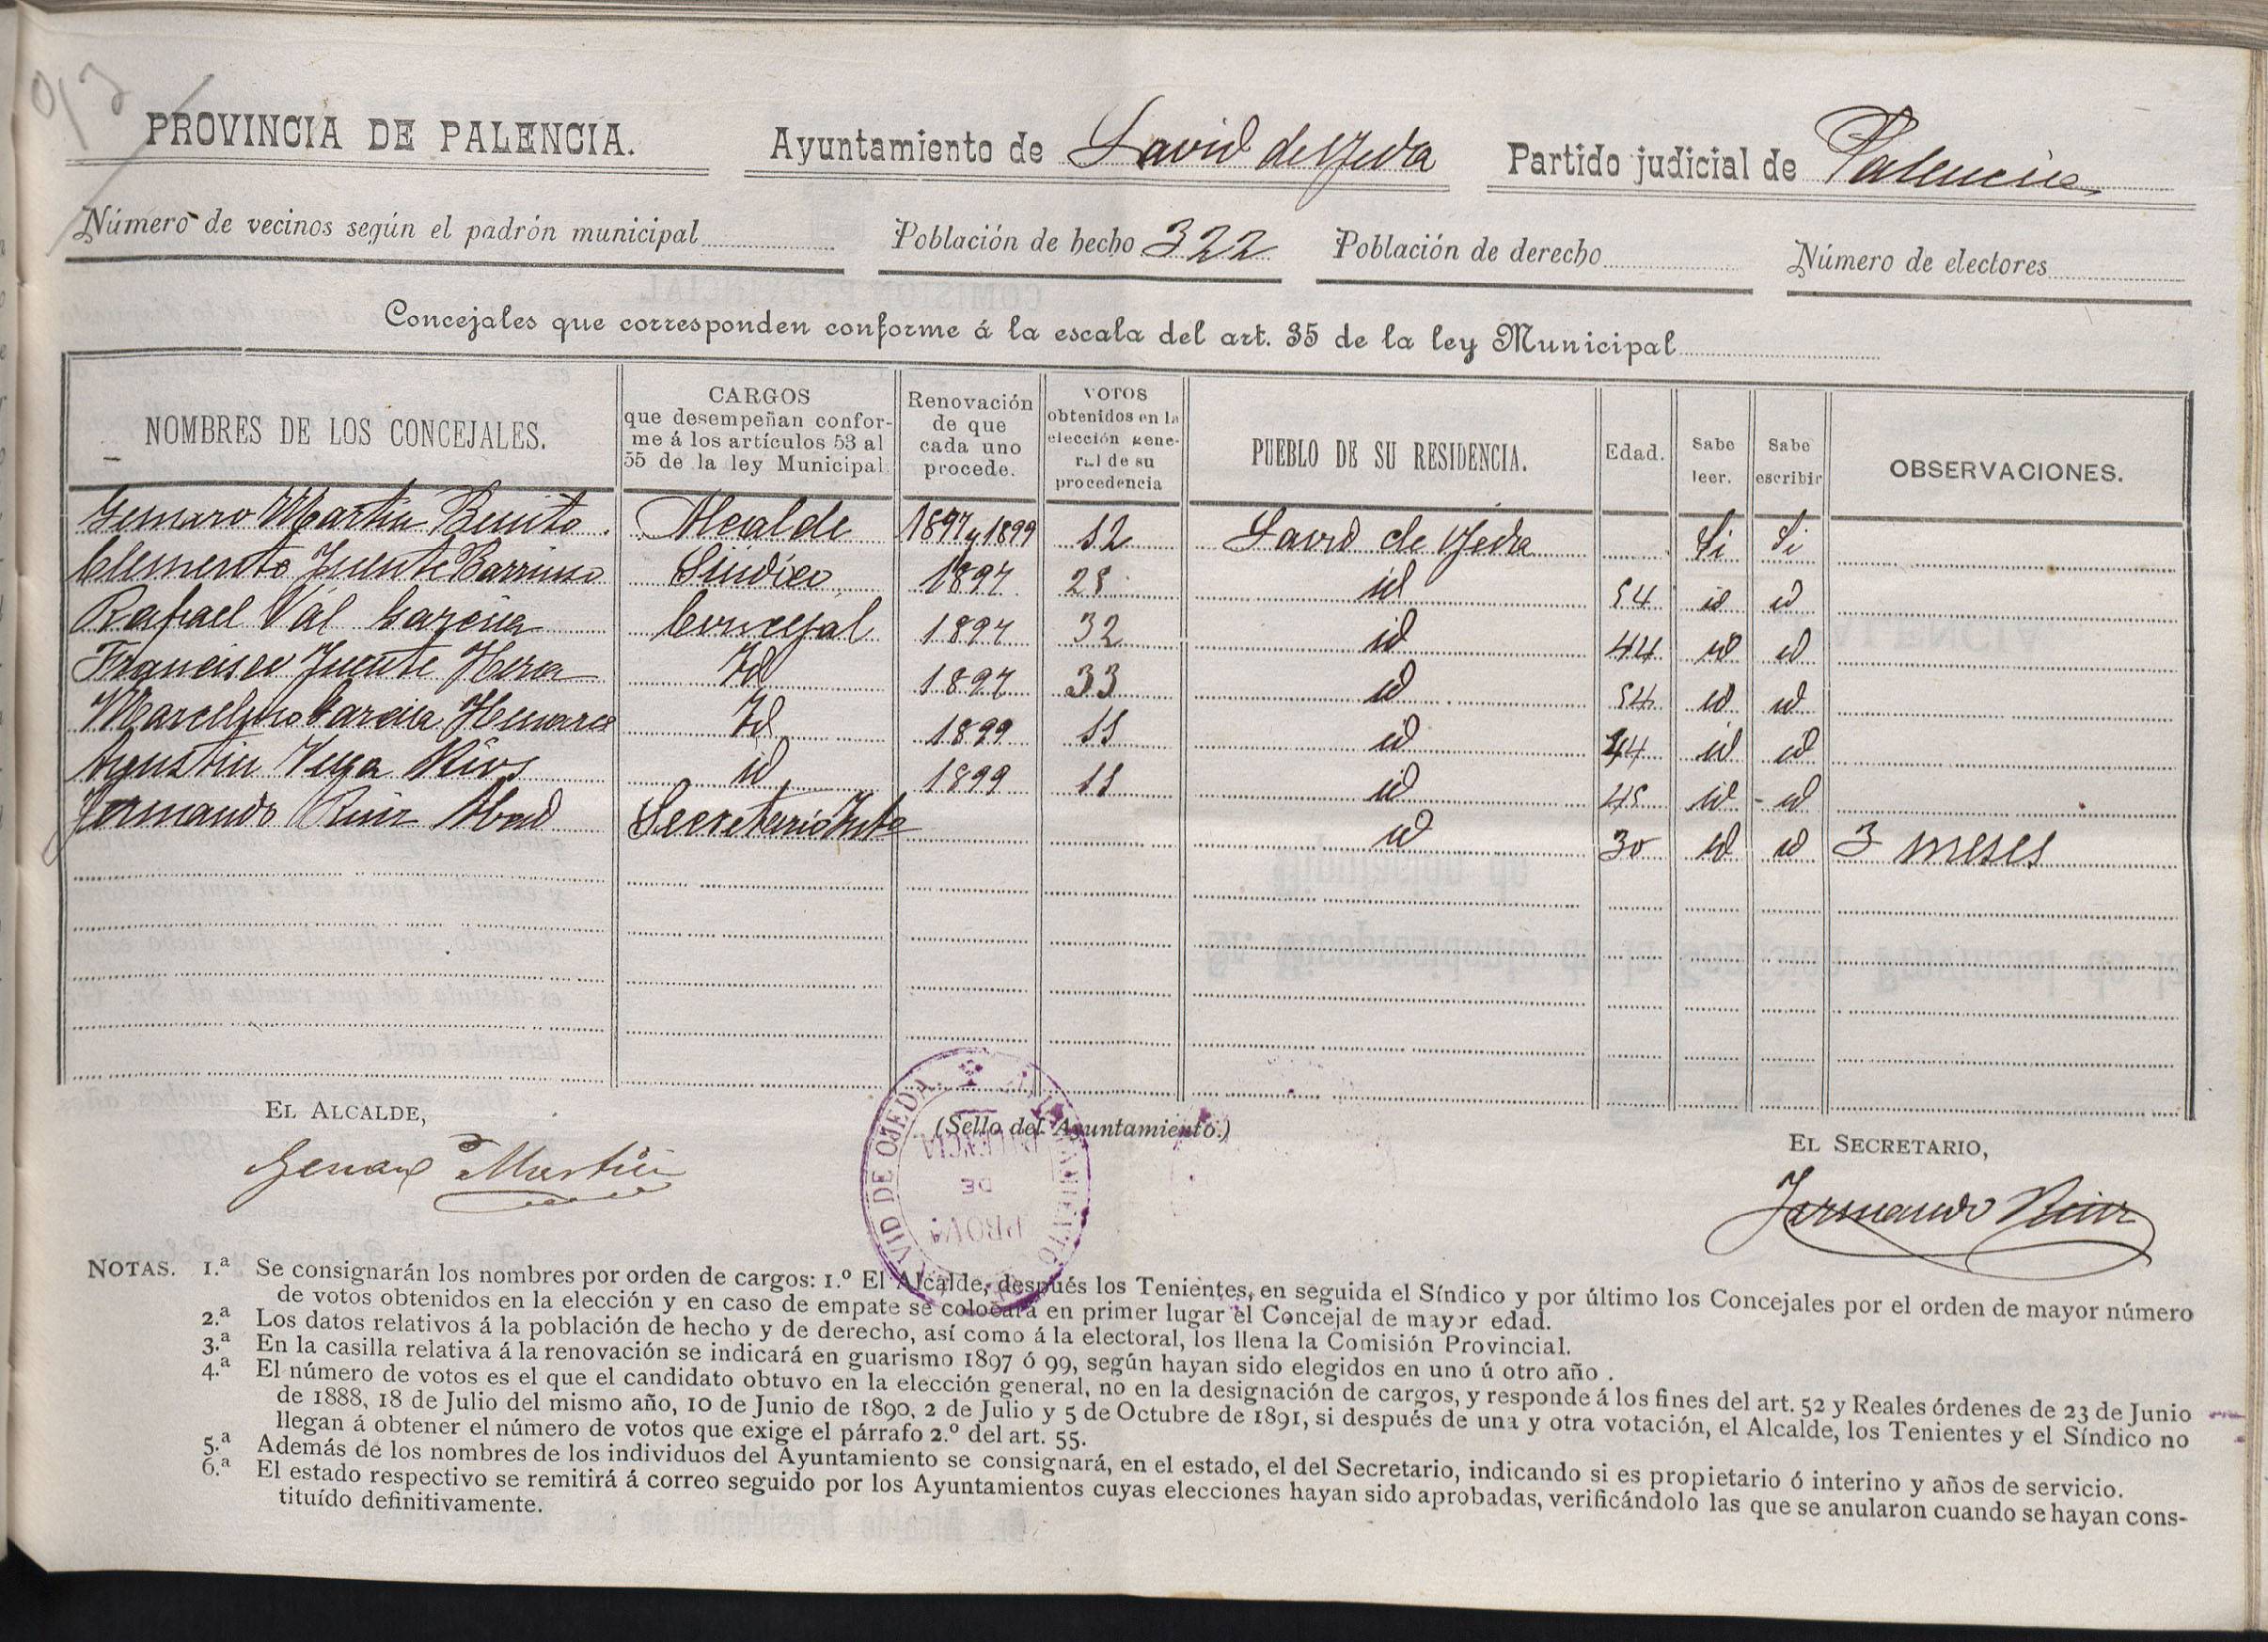 PROVINCIA DE PALENCIA. Ayuntamiento de Lavid de Ojeda Partido judicial de Palencia
Número de vecinos según el padrón municipal Población de hecho 322 Población de derecho Número de electores
Concejales que corresponden conforme á la escala del art. 35 de la ley Municipal
NOMBRES DE LOS CONCEJALES. CARGOS que desempeñan conforme á los artículos 53 al 55 de la ley Municipal. Renovación de que cada uno procede. VOTOS obtenidos en la elección general de su procedencia PUEBLO DE SU RESIDENCIA. Edad. Sabe leer. Sabe escribir OBSERVACIONES.
Genaro Martin Benito Alcalde 1897 y 1899 12 Lavid de Ojeda Si Si
Clemente Fuente Barriuso Síndico 1897 28 id 54 id id
Rafael Val Garcia Concejal 1897 32 id 44 id id
Francisco Fuente Hera Id 1897 33 id 54 id id
Marcelino Garcia Id 1899 11 id 44 id id
Agustin Vega Rios id 1899 11 id 45 id id
Fermando Ruiz Abad Secretario Into id 30 id id 3 meses
EL ALCALDE, (Sello del Ayuntamiento.) EL SECRETARIO,
Genaro Martin
VID DE OJEDA
PALENCIA
DE
PROVA
Fermando Ruiz
NOTAS. 1.ª Se consignarán los nombres por orden de cargos: 1.º El Alcalde, después los Tenientes, en seguida el Síndico y por último los Concejales por el orden de mayor número
de votos obtenidos en la elección y en caso de empate se colocará en primer lugar el Concejal de mayor edad.
2.ª Los datos relativos á la población de hecho y de derecho, así como á la electoral, los llena la Comisión Provincial.
3.ª En la casilla relativa á la renovación se indicará en guarismo 1897 ó 99, según hayan sido elegidos en uno ú otro año .
4.ª El número de votos es el que el candidato obtuvo en la elección general, no en la designación de cargos, y responde á los fines del art. 52 y Reales órdenes de 23 de Junio
de 1888, 18 de Julio del mismo año, 10 de Junio de 1890, 2 de Julio y 5 de Octubre de 1891, si después de una y otra votación, el Alcalde, los Tenientes y el Síndico no
llegan á obtener el número de votos que exige el párrafo 2.º del art. 55.
5.ª Además de los nombres de los individuos del Ayuntamiento se consignará, en el estado, el del Secretario, indicando si es propietario ó interino y años de servicio.
6.ª El estado respectivo se remitirá á correo seguido por los Ayuntamientos cuyas elecciones hayan sido aprobadas, verificándolo las que se anularon cuando se hayan cons-
tituído definitivamente.